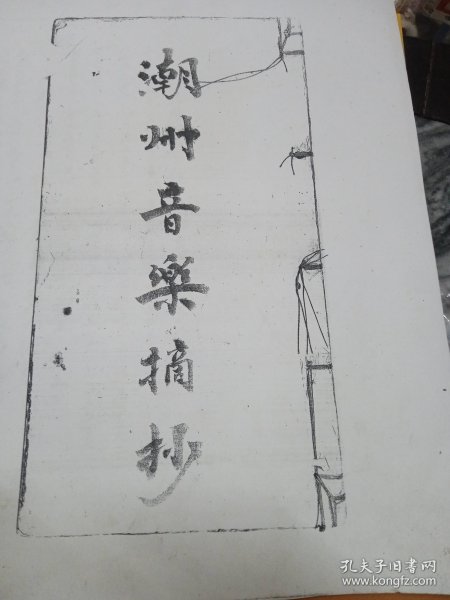 潮州音樂摘抄
孔夫子旧书网
www.kongfz.com